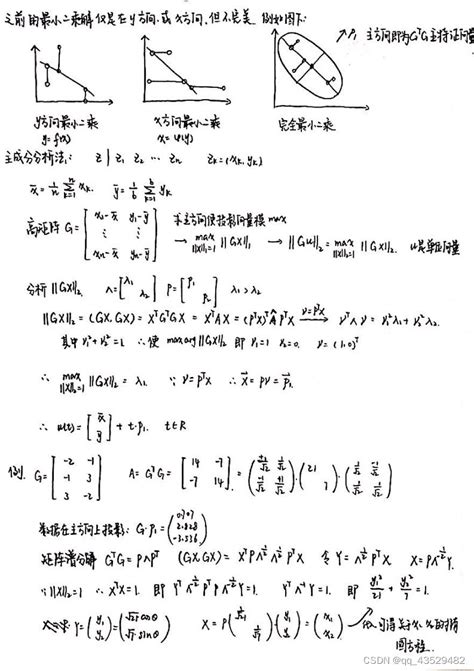 之前的最小二乘解仅是在y方向或x方向,但不完美 例如图下:
P₁ 主方向即为GᵀG主特征向量
y方向最小二乘 x方向最小二乘 完全最小二乘
y=f(x) x=φ(y)
主成分分析法: Z | Z₁ Z₂ … Zₙ Zₖ=(xₖ, yₖ)
x̄ = 1/n Σ xₖ ȳ =
G = [ x₁-x̄ y₁-ȳ ; ⋮ ⋮ ; xₙ-x̄ yₙ-ȳ ] 求主方向使投影向量模 max
→ max ‖x‖₂=1 ‖GX‖₂ → ‖Gu‖₂ = max ‖x‖₂=1 ‖GX‖₂ u是单位向量
分析 ‖GX‖₂ Λ = [ λ₁ ; λ₂ ] P = [ P₁ ; P₂ ] λ₁>λ₂
‖GX‖₂ = (GX, GX) = XᵀGᵀGX = XᵀAX = (PᵀX)ᵀΛPᵀX y=PᵀX → yᵀΛy = y₁²λ₁+y₂²λ₂
其中 y₁²+y₂²=1 ∴使 max arg ‖GX‖₂ 即 y₁=1 y₂=0. y=(1,0)ᵀ
∴ max ‖x‖₂=1 ‖GX‖₂ = λ₁ ∵ y=PᵀX ∴ X=Py=P₁.
∴ u(t) = [ x̄ ; ȳ ] + t·P₁. t∈R
例. G = [ -2 -1 ; -1 3 ; 3 -2 ] A = GᵀG = [ 14 -7 ; -7 14 ] =
数据在主方向上投影: G·P₁ = ( 0.707 ; 2.828 ; -3.536 )
矩阵谱分解 GᵀG=PΛPᵀ (GX,GX) = XᵀPΛ^½Λ^½PᵀX 令 Y=Λ^½PᵀX X=PΛ^-½Y
∵‖X‖₂=1 ∴XᵀX=1. 即 YᵀΛ^-½PᵀPΛ^-½Y=1. YᵀΛ⁻¹Y=1. 即 y₁²/21 + y₂²/7 = 1.
Y = ( y₁ ; y₂ ) = ( √21 cosθ ; √7 sinθ ) X = P ( 1/√21 ; 1/√7 ) ( y₁ ; y₂ ) = ( x₁ ; x₂ )
圆方程.
CSDN @qq_43529482